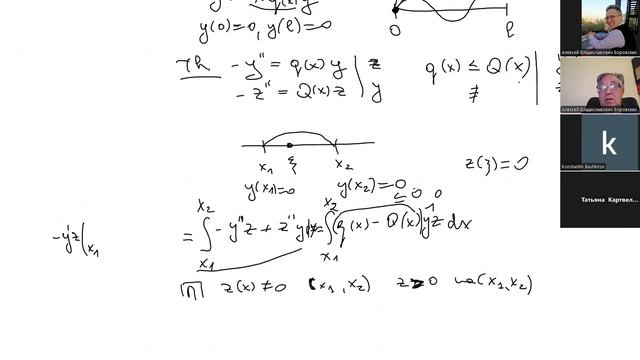 y(0)=0, y(ℓ)=0
0 ℓ
Th -y'' = q(x) y | z q(x) ≤ Q(x)
-z'' = Q(x) z | y ≢
x₁ ξ x₂
y(x₁)=0 y(x₂)=0 z(ξ)=0
-y'z|x₁ = ∫ -y''z + z''y dx = ∫ (q(x) - Q(x)) y z dx
x₁ x₂ x₁ x₂ ≤0 0 0
П z(x) ≠ 0 (x₁, x₂) z>0 на (x₁, x₂)
Алексей Владиславович Боровских
Алексей Владиславович Боровских
k
Konstantin Bashkirov
Татьяна Картвел...